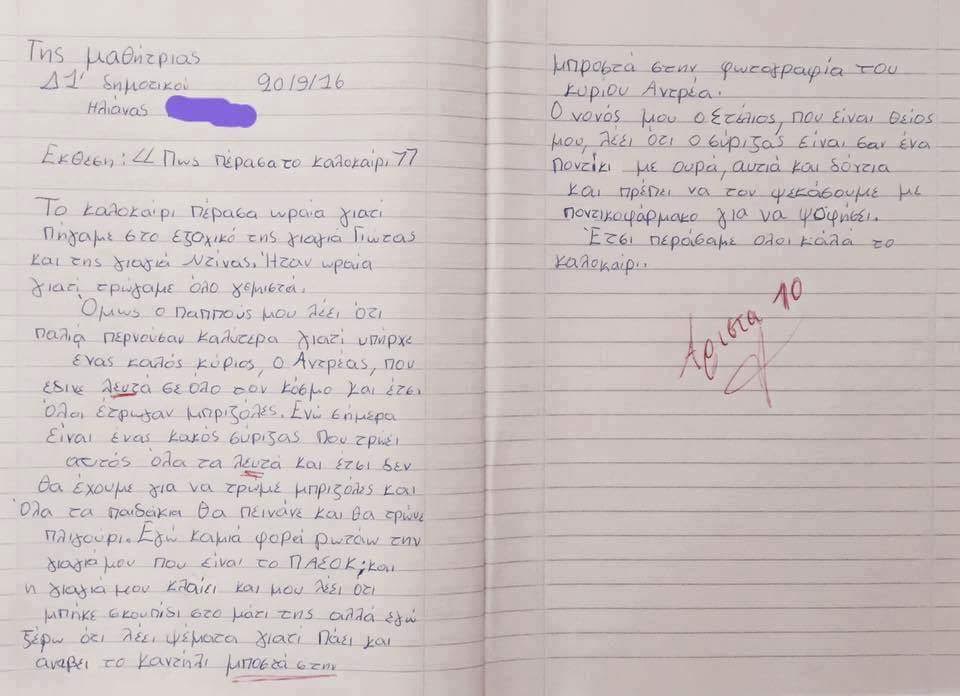 Της μαθήτριας
Δ1' δημοτικού 20/9/16
Ηλιάνας
Εκθεση: "Πως πέρασα το καλοκαίρι"
Το καλοκαίρι πέρασα ωραία γιατί
πήγαμε στο εξοχικό της γιαγιά Γιώτας
και της γιαγιά Ντίνας. Ήταν ωραία
γιατί τρώγαμε όλο γεμιστά.
Όμως ο παππούς μου λέει ότι
παλιά περνούσαν καλύτερα γιατί υπήρχε
ένας καλός κύριος, ο Αντρέας, που
έδινε λευτά σε όλο τον κόσμο και έτσι
όλοι έτρωγαν μπριζόλες. Ενώ σήμερα
είναι ένας κακός σύριζας που τρώει
αυτός όλα τα λευτά και έτσι δεν
θα έχουμε για να τρώμε μπριζόλες και
όλα τα παιδάκια θα πεινάνε και θα τρώνε
πλιγούρι. Εγώ καμιά φορεί ρωτάω την
γιαγιά μου που είναι το ΠΑΣΟΚ; και
η γιαγιά μου κλαίει και μου λέει ότι
μπήκε σκουπίδι στο μάτι της αλλά εγώ
ξέρω ότι λέει ψέματα γιατί πάει και
ανάβει το καντήλι μποστά στην
μπροστά στην φωτογραφία του
κύριου Αντρέα.
Ο νονός μου ο Στέλιος, που είναι θείος
μου, λέει ότι ο σύριζας είναι σαν ένα
ποντίκι με ουρά, αυτιά και δόντια
και πρέπει να τον ψεκάσουμε με
ποντικοφάρμακο για να ψοφήσει.
Έτσι περάσαμε όλοι καλά το
καλοκαίρι.
Αριστα 10